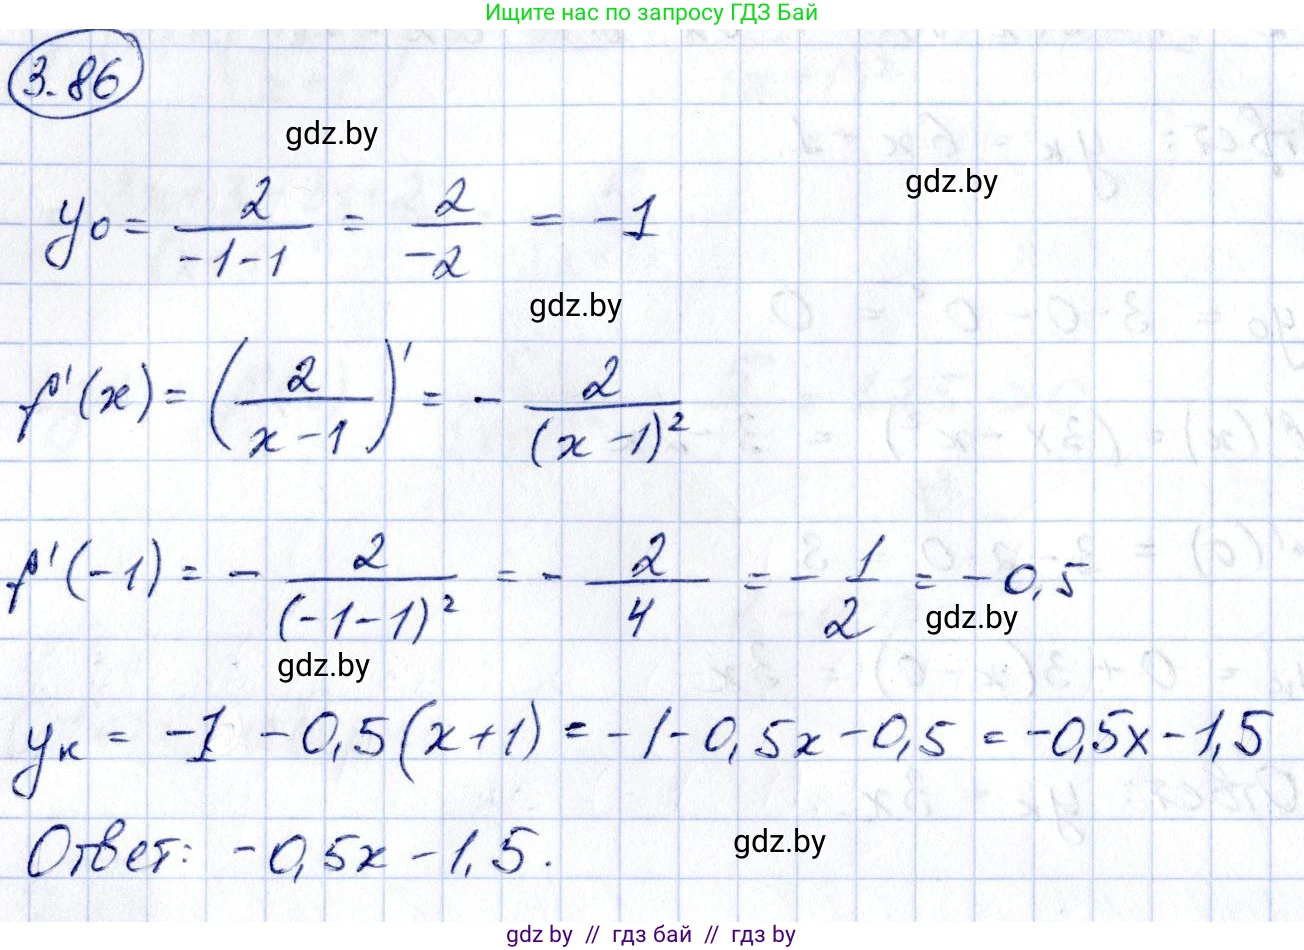 Ищите нас по запросу ГДЗ Бай
3.86
gdz.by
gdz.by
y₀ = 2/(-1-1) = 2/-2 = -1
gdz.by
f'(x) = (2/(x-1))' = - 2/(x-1)²
f'(-1) = - 2/(-1-1)² = - 2/4 = - 1/2 = -0,5
gdz.by
gdz.by
yк = -1 -0,5(x+1) = -1-0,5x-0,5 = -0,5x-1,5
gdz.by
Ответ: -0,5x-1,5.
gdz by // гдз бай // гдз by